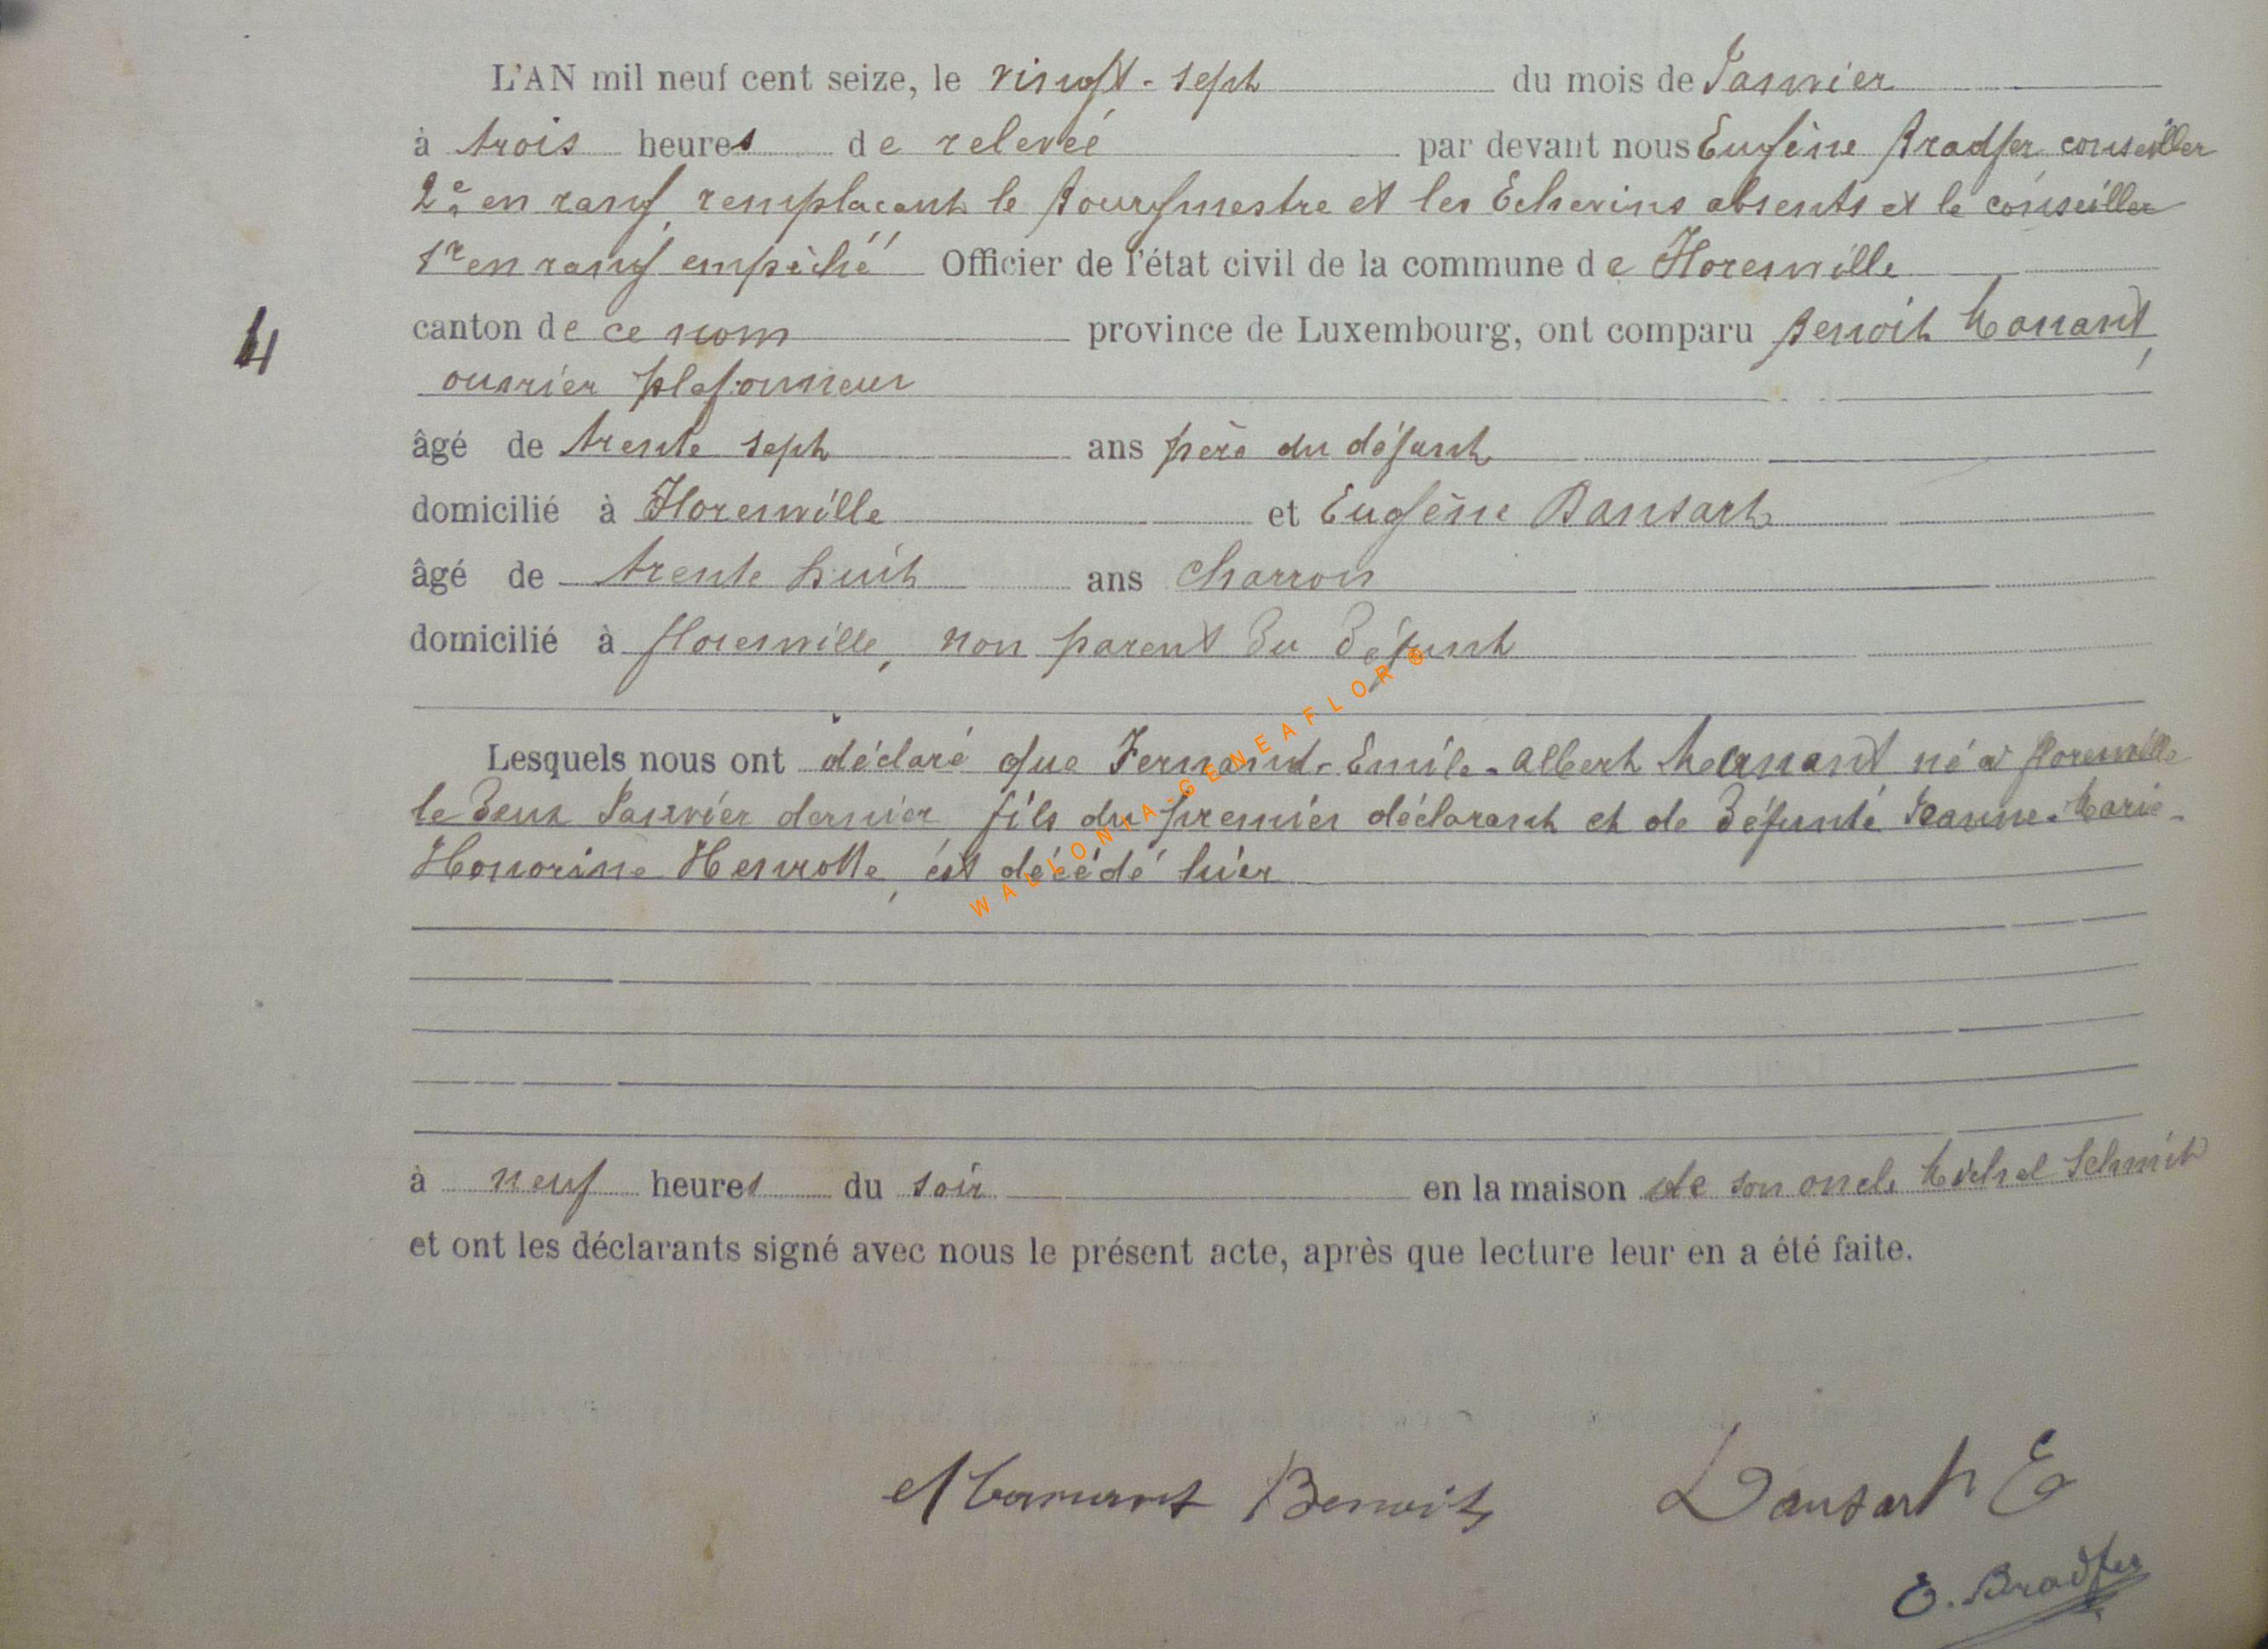 L'AN mil neuf cent seize, le vingt-sept du mois de Janvier
à trois heures de relevée par devant nous Eugène Bradfer conseiller
2e en rang, remplaçant le Bourgmestre et les Echevins absents et le conseiller
1er en rang empêché Officier de l'état civil de la commune de Florenville
4
canton de ce nom province de Luxembourg, ont comparu Benoit Manant,
ouvrier plafonneur
âgé de trente sept ans père du défunt
domicilié à Florenville et Eugène Dansart
âgé de trente huit ans charron
domicilié à florenville, non parent du défunt
Lesquels nous ont déclaré que Fernand-Emile-Albert Manant né à florenville
le deux Janvier dernier fils du premier déclarant et de défunte Jeanne-Marie-
Honorine Henrotte, est décédé hier
à neuf heures du soir en la maison de son oncle Michel Schmit
et ont les déclarants signé avec nous le présent acte, après que lecture leur en a été faite.
Manant Benoit Dansart E
E. Bradfer
WALLONIA-GENEAFLOR ©